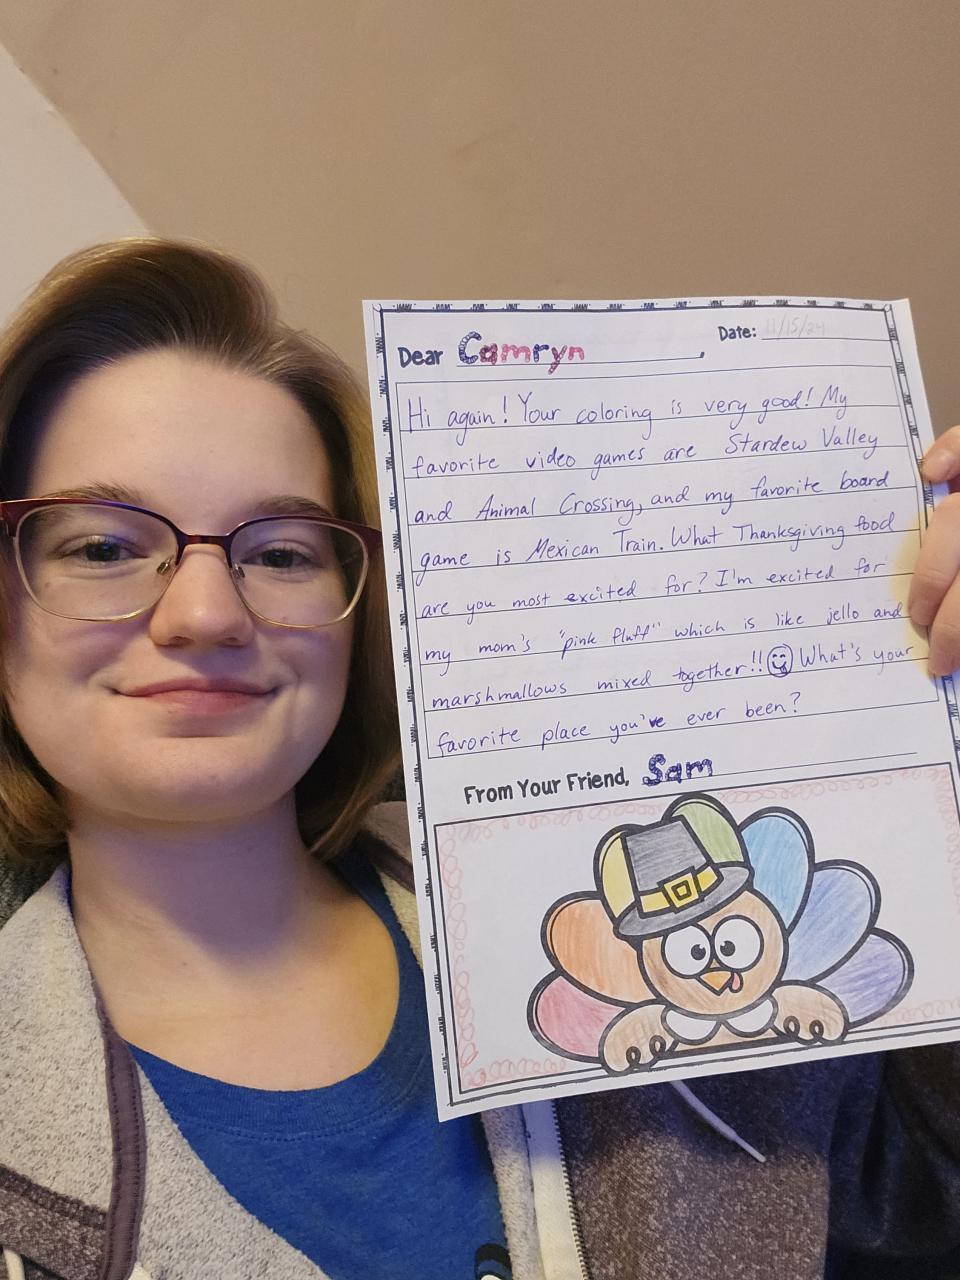 Date: 11/15/24
Dear Camryn,
Hi again! Your coloring is very good! My
favorite video games are Stardew Valley
and Animal Crossing, and my favorite board
game is Mexican Train. What Thanksgiving food
are you most excited for? I'm excited for
my mom's "pink fluff" which is like jello and
marshmallows mixed together!! What's your
favorite place you've ever been?
From Your Friend, Sam